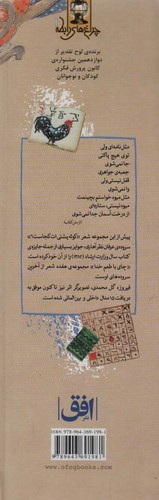 چراغ‌های رابطه
برنده‌ی لوح تقدیر از
دوازدهمین جشنواره‌ی
کانون پرورش فکری
کودکان و نوجوانان
مثل نامه‌ای ولی
توی هیچ پاکتی
جا نمی‌شوی
جعبه‌ی جواهری
قفل نیستی ولی
وا نمی‌شوی
مثل میوه خواستم بچینمت
میوه نیستی، ستاره‌ای
از درخت آسمان جدا نمی‌شوی
پیش از این مجموعه شعر «کوله‌پشتی‌ات کجاست؟»
سروده‌ی عرفان نظرآهاری، جوایز بسیاری از جمله جایزه‌ی
کتاب سال وزارت ارشاد را از آن خود کرده است.
«چای با طعم خدا» مجموعه‌ی هفده شعر از آخرین
سروده‌های اوست.
فیروزه گل محمدی، تصویرگر اثر نیز تا کنون موفق به
دریافت ۱۵ مدال داخلی و بین‌المللی شده است.
افق
ISBN: 978-964-369-198-1
9 789643 691981
www.ofoqbooks.com